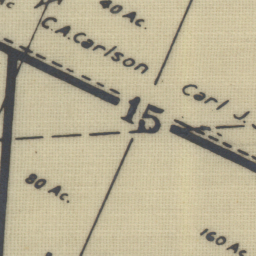 40 Ac.
C.A. Carlson
Carl J.
15
80 Ac.
160 Ac.